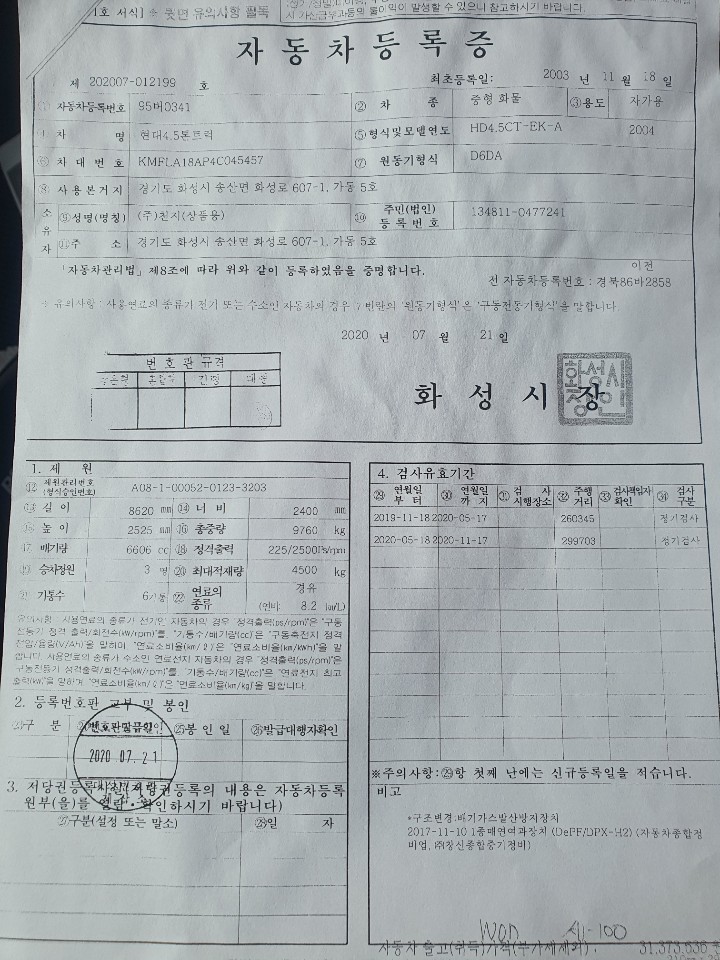 1호 서식] ※ 뒷면 유의사항 필독
시 가산금부과등의 불이익이 발생할 수 있으니 참고하시기 바랍니다.
자동차등록증
제 202007-012199 호
최초등록일: 2003 년 11 월 18 일
① 자동차등록번호 95버0341 ② 차 종 중형 화물 ③용도 자가용
차 명 현대4.5톤트럭 ⑤형식및모델연도 HD4.5CT-EK-A 2004
⑥ 차대번호 KMFLA18AP4C045457 ⑦ 원동기형식 D6DA
⑧ 사용본거지 경기도 화성시 송산면 화성로 607-1, 가동 5호
소유자 ⑨성명(명칭) (주)천지(상품용) ⑩ 주민(법인)등록번호 134811-0477241
⑪주 소 경기도 화성시 송산면 화성로 607-1, 가동 5호
「자동차관리법」 제8조에 따라 위와 같이 등록하였음을 증명합니다.
이전
전 자동차등록번호 : 경북86바2858
※ 유의사항 : 사용연료의 종류가 전기 또는 수소인 자동차의 경우 7 번란의 '원동기형식'은 '구동전동기형식'을 말합니다
2020 년 07 월 21 일
번호판규격
화성시장
1. 제 원
⑫ 제원관리번호 (형식승인번호) A08-1-00052-0123-3203
길이 8620 mm ⑭ 너비 2400 mm
높이 2525 mm ⑯ 총중량 9760 kg
배기량 6606 cc ⑱ 정격출력 225/2500Ps/rpm
승차정원 3 명 ⑳ 최대적재량 4500 kg
기통수 6기통 ㉒ 연료의 종류 경유 (연비: 8.2 km/L)
유의사항 : 사용연료의 종류가 전기인 자동차의 경우 "정격출력(ps/rpm)"은 "구동
전동기 정격 출력/회전수(kW/rpm)"를 "기통수/배기량(cc)"은 "구동축전지 정격
전압/용량(V/Ah)"을 말하며 "연료소비율(km/ℓ)"은 "연료소비율(km/kWh)"을 말
합니다. 사용연료의 종류가 수소인 연료전지 자동차의 경우 "정격출력(ps/rpm)"은
구동전동기 정격출력/회전수(kW/rpm)"를 "기통수/배기량(cc)"은 "연료전지 최고
출력(kW)"을 말하며 "연료소비율(km/ℓ)"은 "연료소비율(km/kg)을 말합니다.
2. 등록번호판 교부 및 봉인
구 분 번호판발급일 ㉕봉인일 ㉖발급대행자확인
2020 07. 21
3. 저당권등록사실(저당권등록의 내용은 자동차등록
원부(을)를 열람·확인하시기 바랍니다)
㉗구분(설정 또는 말소) ㉘일 자
4. 검사유효기간
㉙ 연월일부터 ㉚ 연월일까지 ㉛ 검사시행장소 ㉜ 주행거리 ㉝ 검사책임자확인 ㉞ 검사구분
2019-11-18 2020-05-17 260345 정기검사
2020-05-18 2020-11-17 299703 정기검사
※주의사항:㉙항 첫째 난에는 신규등록일을 적습니다.
비고
*구조변경:배기가스발산방지장치
2017-11-10 1종매연여과장치 (DePF/DPX-H2) (자동차종합정
비업, ㈜창신종합중기정비)
자동차 출고(취득)가격(부가세제외) : 31,373,636 원